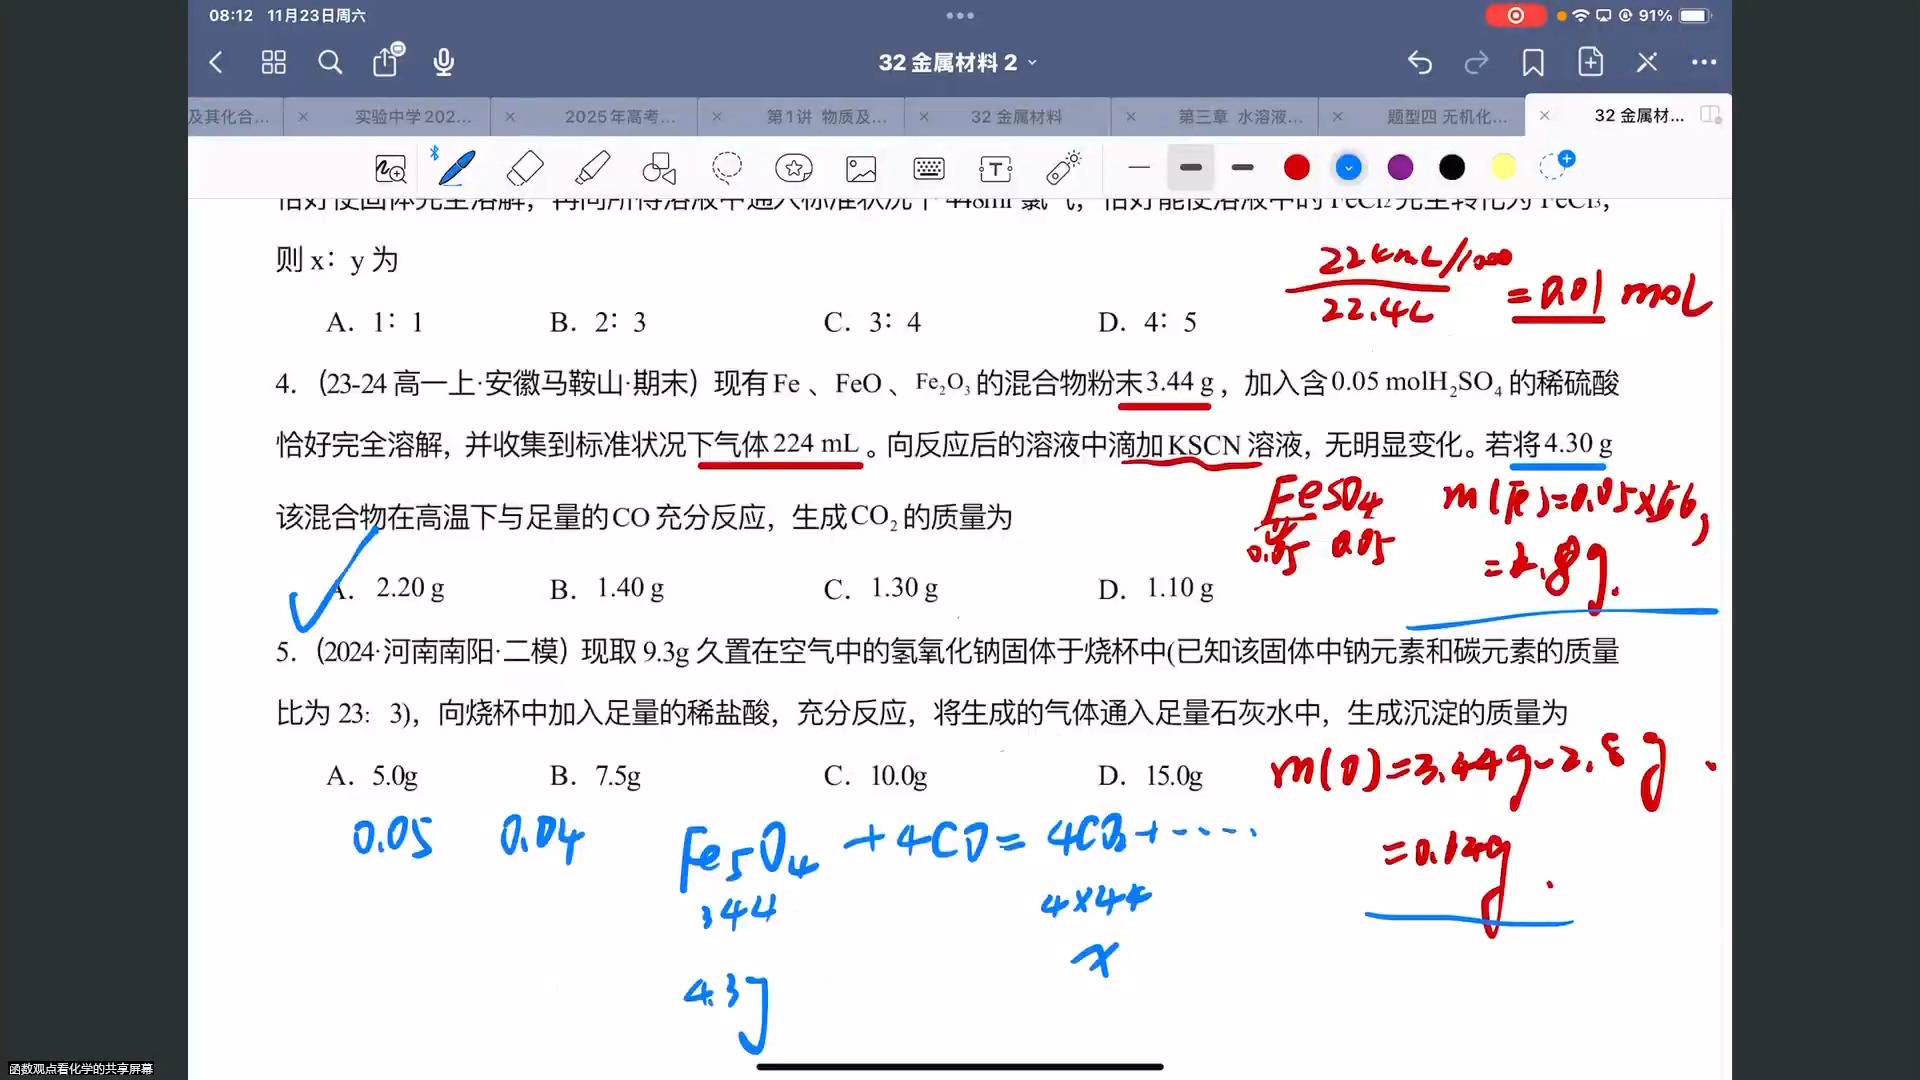 08:12 11月23日周六
91%
32 金属材料 2
及其化合...
实验中学 202...
2025年高考...
第1讲 物质及...
32 金属材料
第三章 水溶液...
题型四 无机化...
32 金属材...
恰好使固体完全溶解，再向所得溶液中通入标准状况下448ml 氯气，恰好能使溶液中的 FeCl₂完全转化为 FeCl₃，
则 x：y 为
22.4L
=0.01 mol
A．1：1 B．2：3 C．3：4 D．4：5
4．(23-24 高一上·安徽马鞍山·期末）现有 Fe 、FeO 、Fe₂O₃ 的混合物粉末 3.44 g，加入含 0.05 molH₂SO₄ 的稀硫酸
恰好完全溶解，并收集到标准状况下气体 224 mL 。向反应后的溶液中滴加 KSCN 溶液，无明显变化。若将 4.30 g
FeSO₄
0.05 0.05
m(Fe)=0.05×56
=2.8g.
该混合物在高温下与足量的 CO 充分反应，生成 CO₂ 的质量为
A．2.20 g B．1.40 g C．1.30 g D．1.10 g
5．(2024·河南南阳·二模）现取 9.3g 久置在空气中的氢氧化钠固体于烧杯中(已知该固体中钠元素和碳元素的质量
比为 23：3)，向烧杯中加入足量的稀盐酸，充分反应，将生成的气体通入足量石灰水中，生成沉淀的质量为
A．5.0g B．7.5g C．10.0g D．15.0g
m(O)=3.44g-2.8g
0.05 0.04
Fe₅O₄ +4CO= 4CO₂+·····
344 4×44
4.3g x
函数观点看化学的共享屏幕